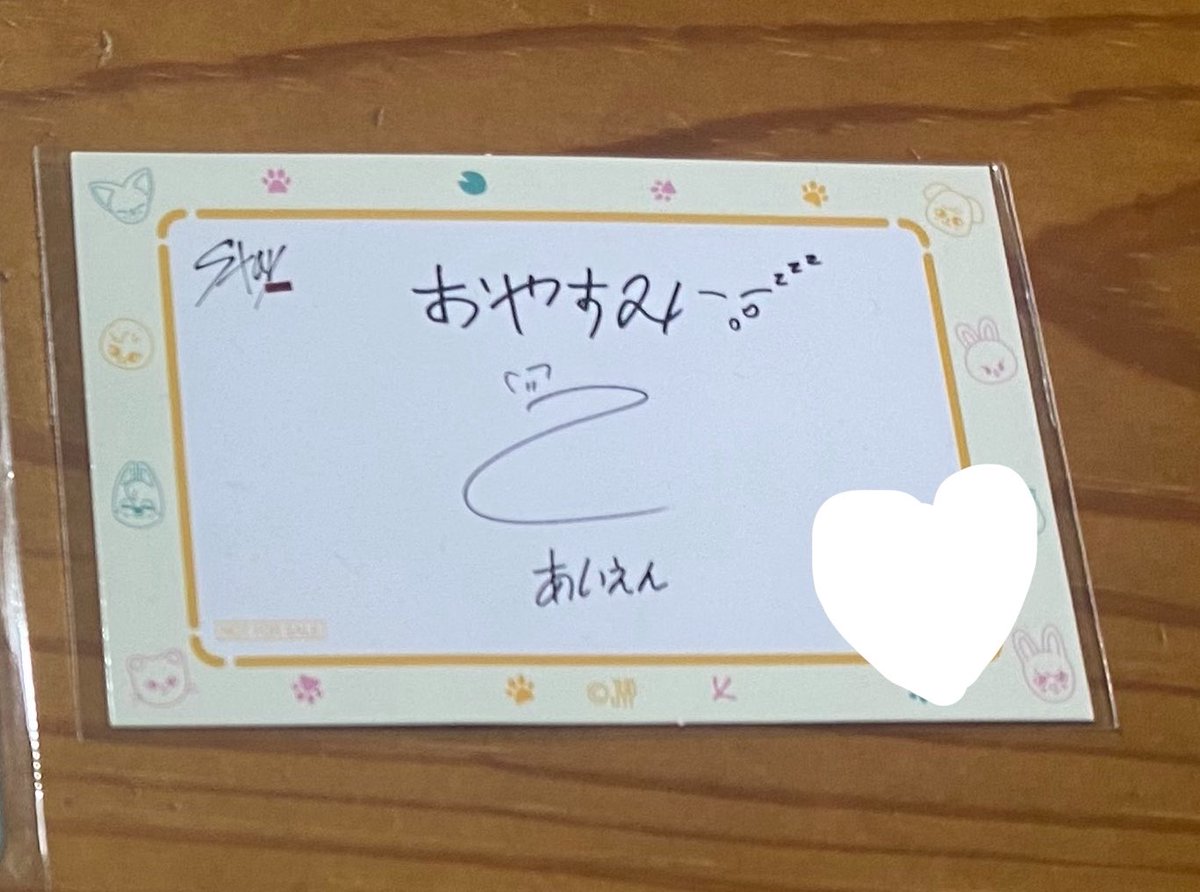 Stay
おやすみ zzz
あいえん
NOT FOR SALE
©JYP